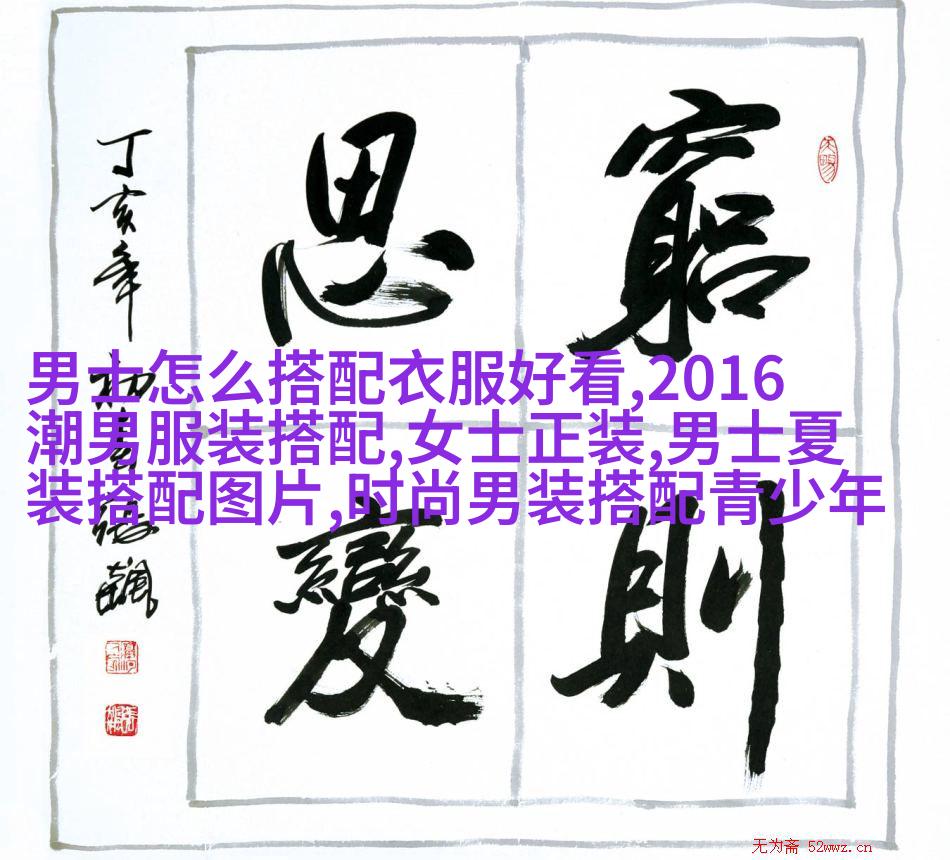 窮則
思變
丁亥年初春
男士怎么搭配衣服好看,2016
潮男服装搭配,女士正装,男士夏
装搭配图片,时尚男装搭配青少年
无为斋 52wwz.cn